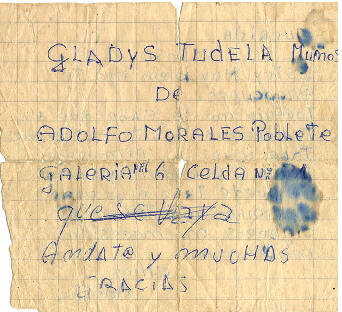 GLADYS TUDELA Muños
De
ADOLFO MORALES Poblete
GALERIA Nº 6 Celda Nº 1
que se vaya
Andate y muchas
GRACIAS